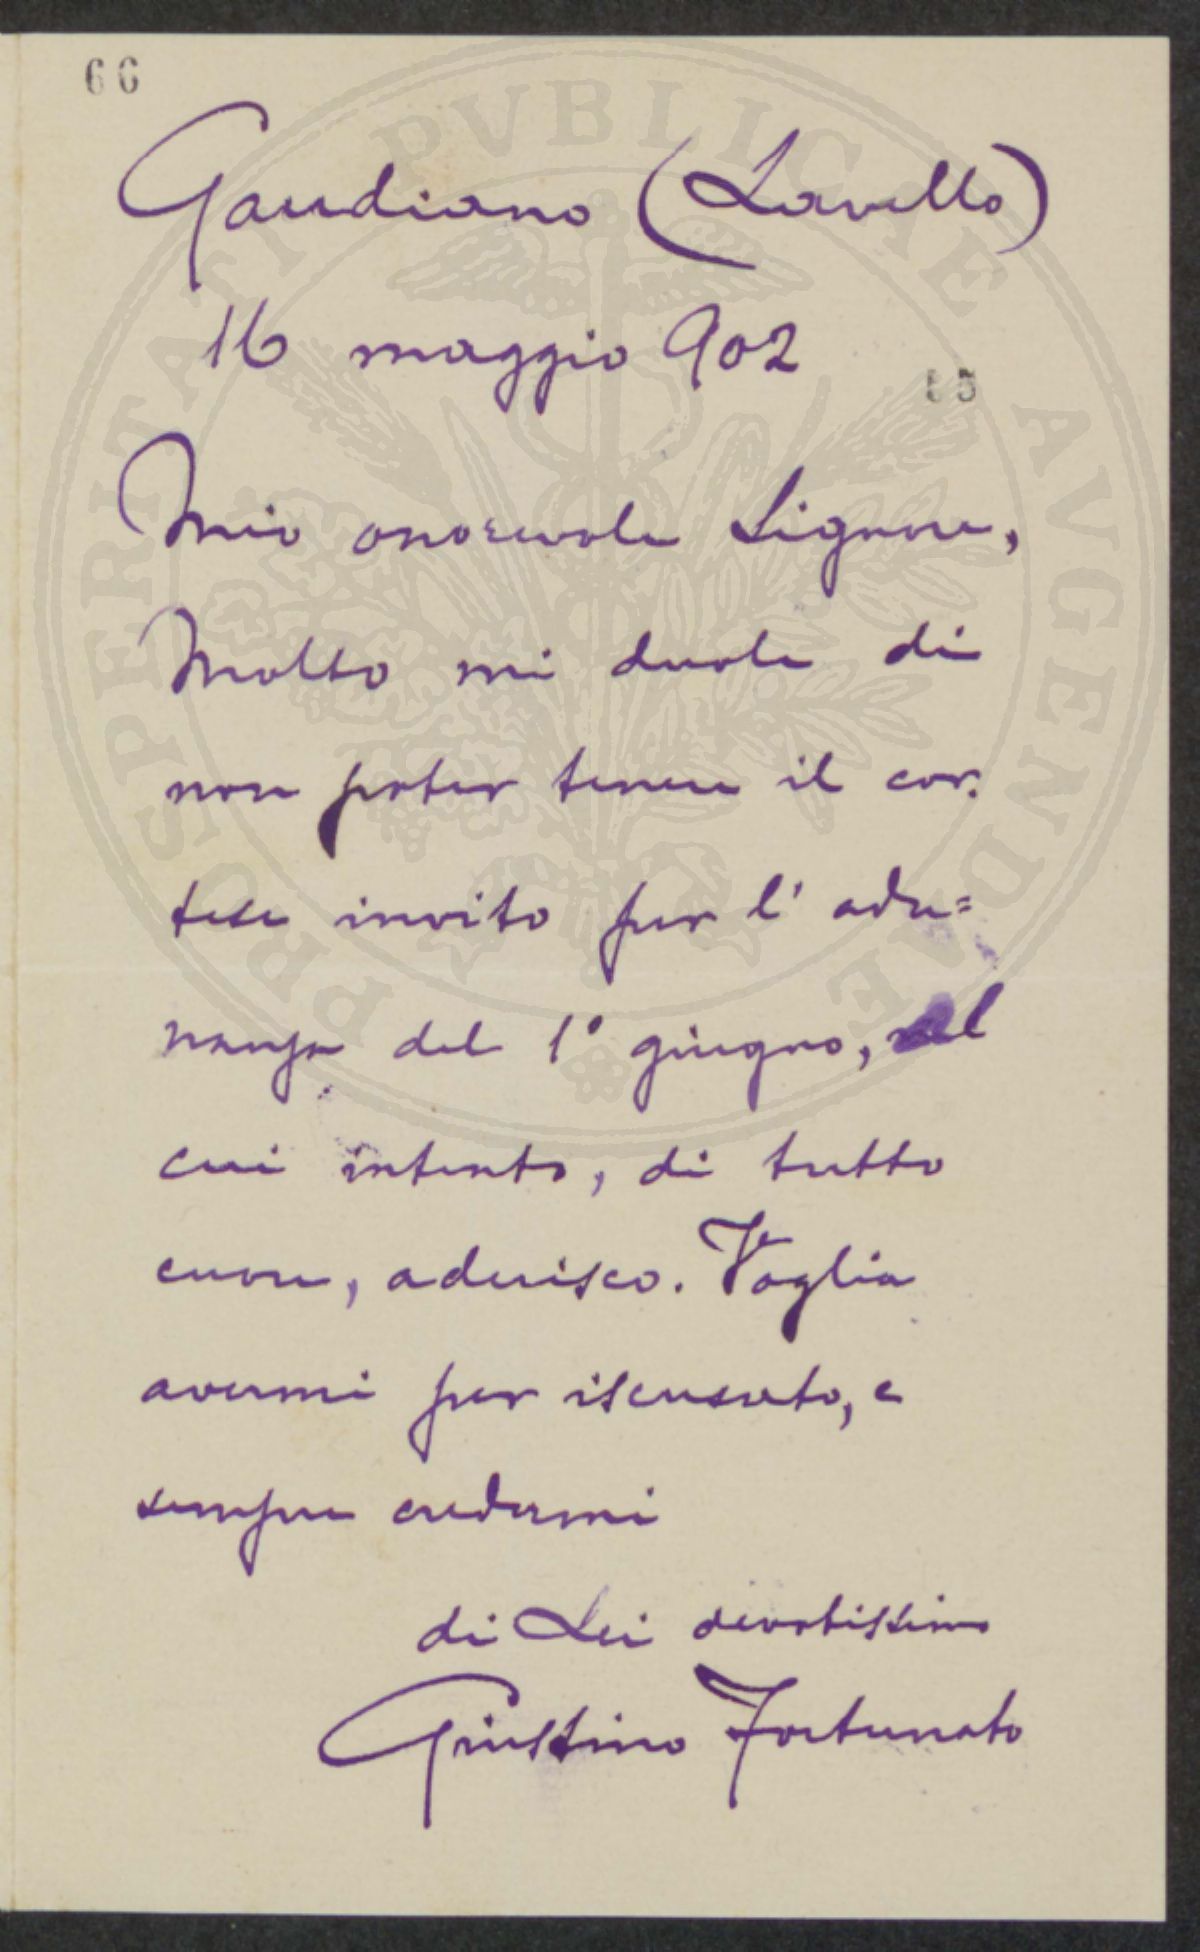 66
PROSPERITATI PVBLICAE AVGENDAE
Gaudiano (Lavello)
16 maggio 902
55
Mio onorevole Signore,
Molto mi duole di
non poter tenere il cor.
tese invito per l'adu=
nanza del 1° giugno, al
cui intento, di tutto
cuore, aderisco. Voglia
avermi per iscusato, e
sempre credermi
di Lei devotissimo
Giustino Fortunato